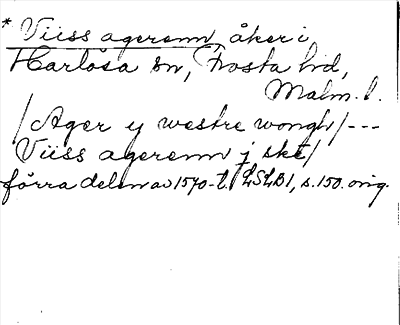 * Viiss agerenn, åker i
Harlösa sn, Frosta hd,
Malm. l.
/Ager y westre wongh/---
Viiss agerenn j ske/
förra delen av 1570-t. LSLB1, s. 150. orig.